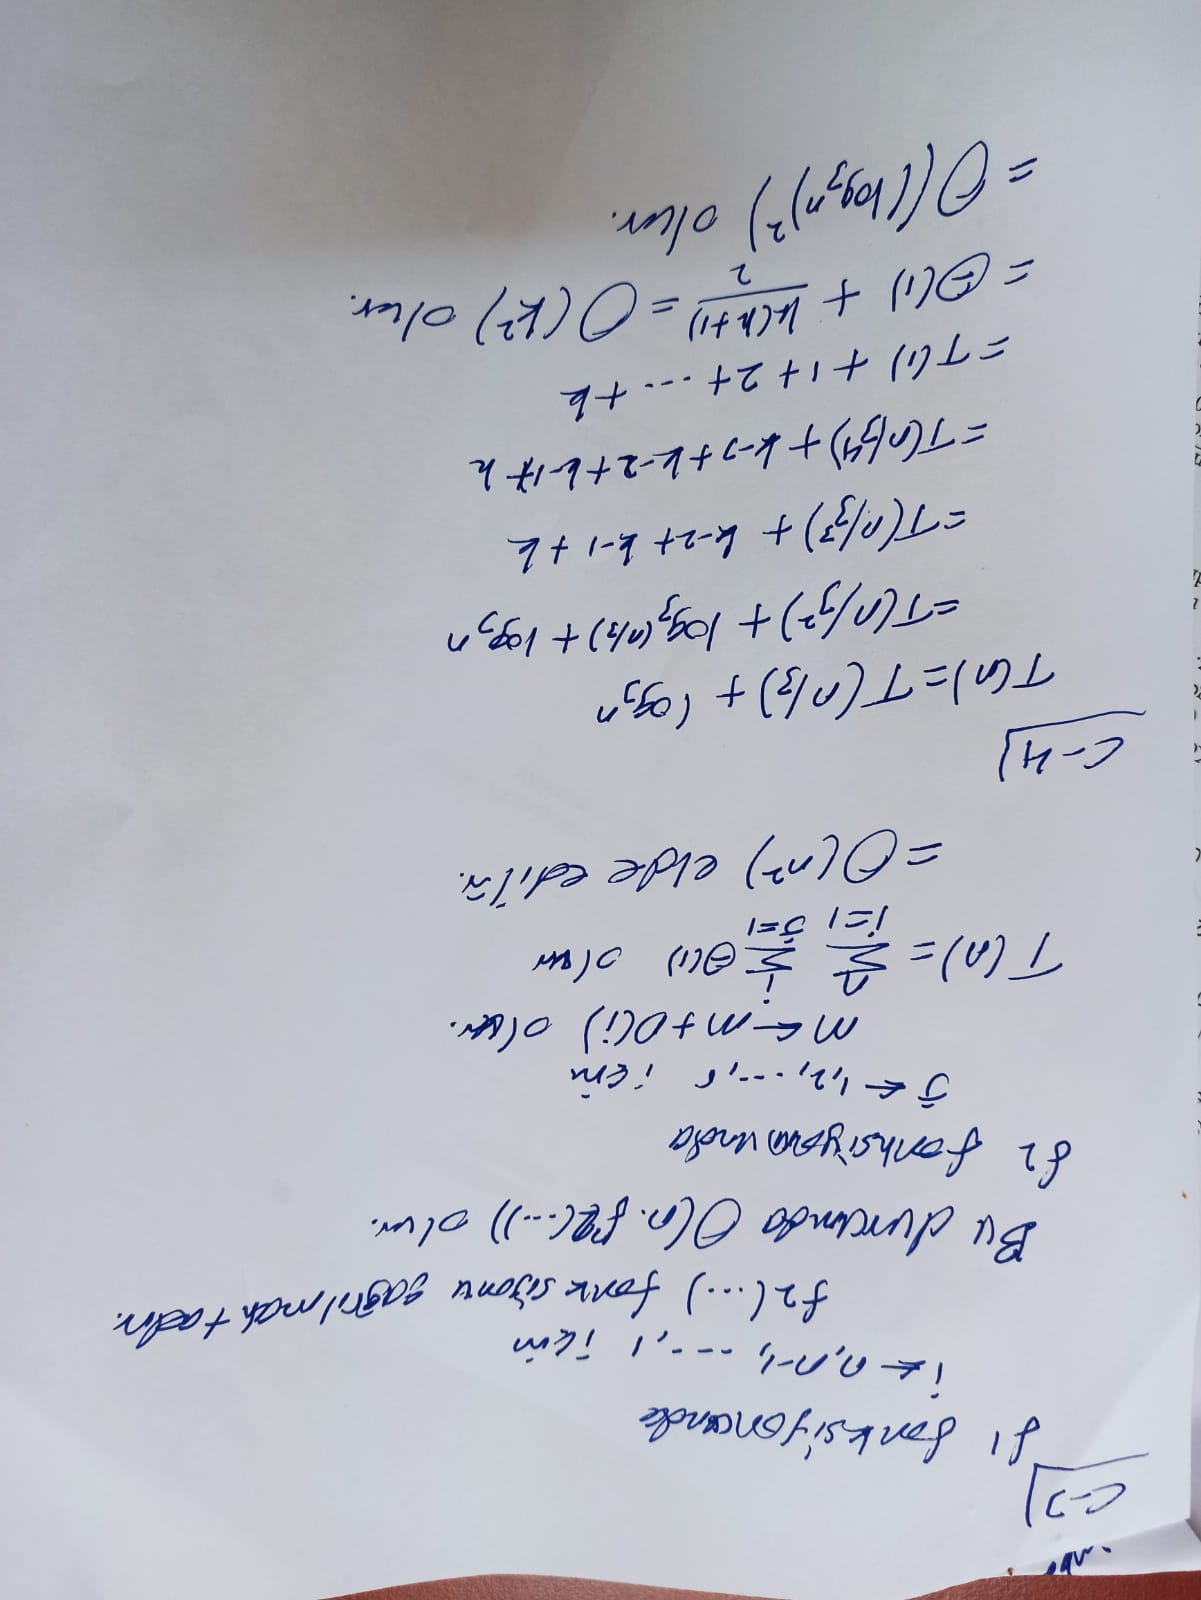 C-3)
f1 fonksiyonunda
i ← n, n-1, ---, 1 için
f2(...) fonksiyonu çağrılmaktadır.
Bu durumda O(n.f2(...)) olur.
f2 fonksiyonunda
j ← 1,2, ..., r için
m ← m + D(i) olur.
T(n) = ∑_{i=1}^{n} ∑_{j=1}^{i} Θ(1) olur
= O(n²) elde edilir.
C-4)
T(n) = T(n/3) + log₃n
= T(n/3²) + log₃(n/3) + log₃n
= T(n/3³) + k-2 + k-1 + k
= T(n/3⁴) + k-3 + k-2 + k-1 + k
= T(1) + 1 + 2 + ... + k
= Θ(1) + k(k+1)/2 = O(k²) olur.
= O((log₃n)²) olur.